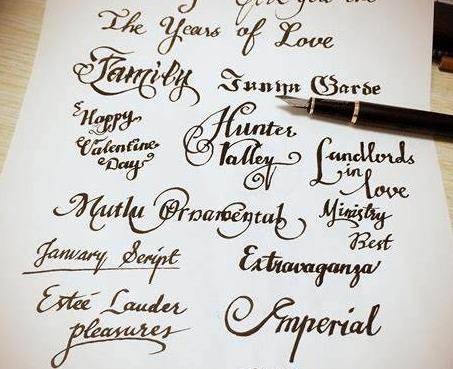 give you the
The Years of Love
Family
Happy
Valentine
Days
Hunter
Valley
Landlords
in
love
Mutlu Ornamental
Ministry
January Script
Extravaganza
Esteé Lauder
pleasures
Imperial